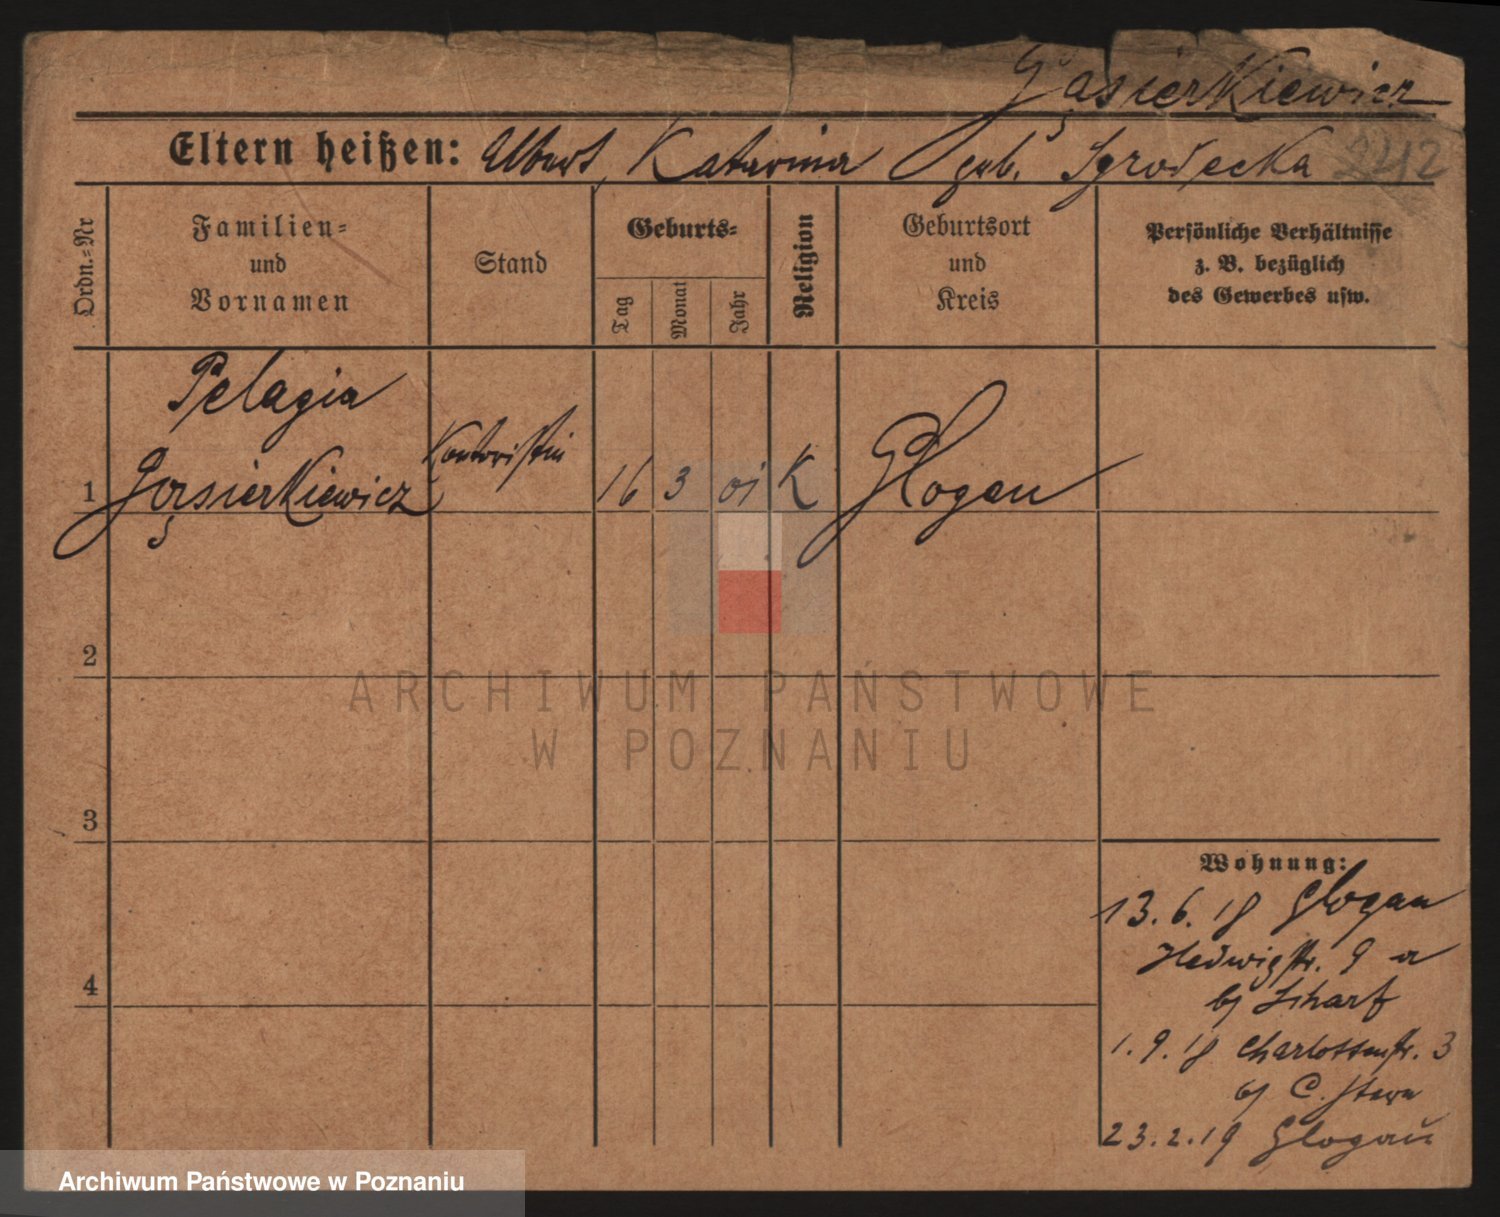 Gąsierkiewicz
Eltern heißen: Albert, Katarina geb. Sgrodecka 2412
Ordn.=Nr
Familien=
und
Vornamen
Stand
Geburts=
Tag
Monat
Jahr
Religion
Geburtsort
und
Kreis
Persönliche Verhältnisse
z. B. bezüglich
des Gewerbes usw.
Pelagia
1 Gąsierkiewicz Kontoristin 16 3 01 K Glogau
2
3
4
Wohnung:
13. 6. 18 Glogau
Hedwigstr. 9 a
bj Scharf
1. 9. 18 Charlottenstr. 3
bj C. Stern
23. 2. 19 Glogau
ARCHIWUM PAŃSTWOWE
W POZNANIU
Archiwum Państwowe w Poznaniu